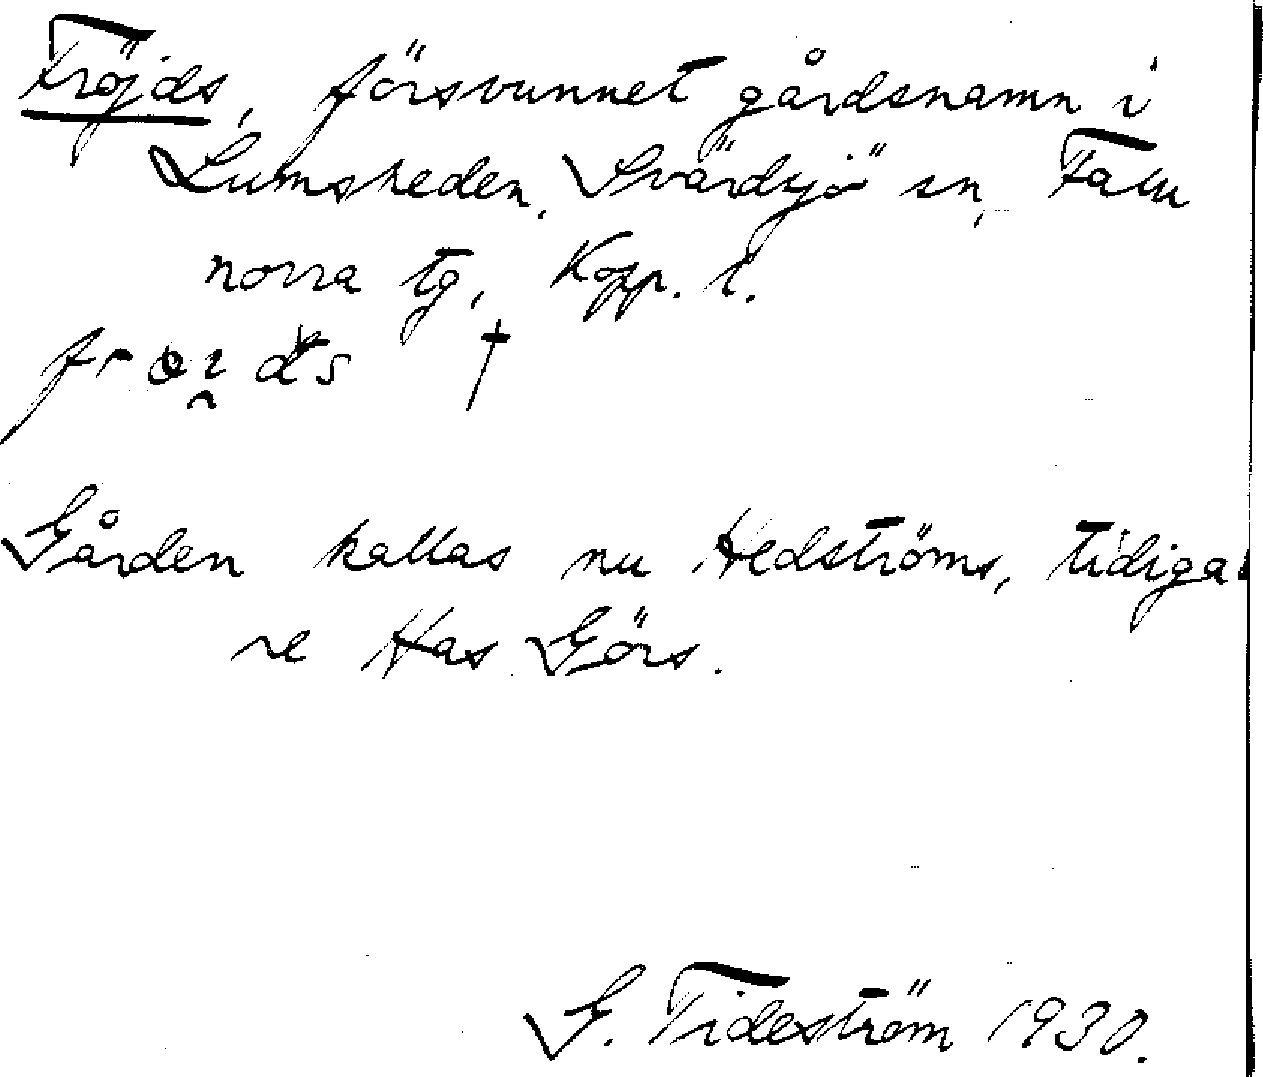 Fröjds, försvunnet gårdsnamn i
Lumsheden, Svärdsjö sn, Falu
norra tg, Kopp. l.
†
Gården kallas nu Hedströms, tidiga-
re Has Görs.
G. Tideström 1930.